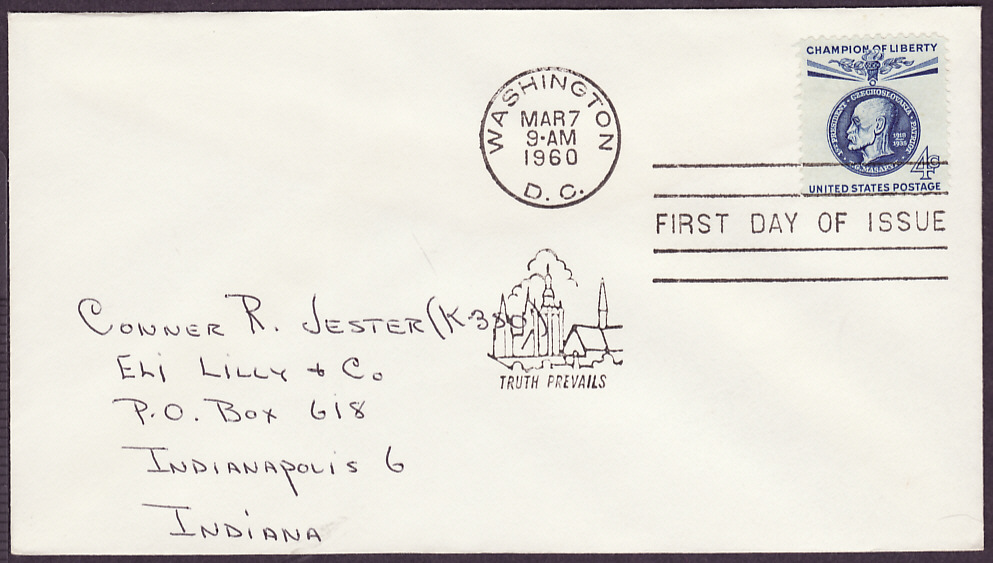 CHAMPION OF LIBERTY
1ST PRESIDENT · CZECHOSLOVAKIA · PATRIOT
1918
1935
T.G. MASARYK
4¢
UNITED STATES POSTAGE
WASHINGTON
MAR 7
9-AM
1960
D.C.
FIRST DAY OF ISSUE
CONNER R. JESTER (K-350)
ELI LILLY & CO
P.O. BOX 618
INDIANAPOLIS 6
INDIANA
TRUTH PREVAILS